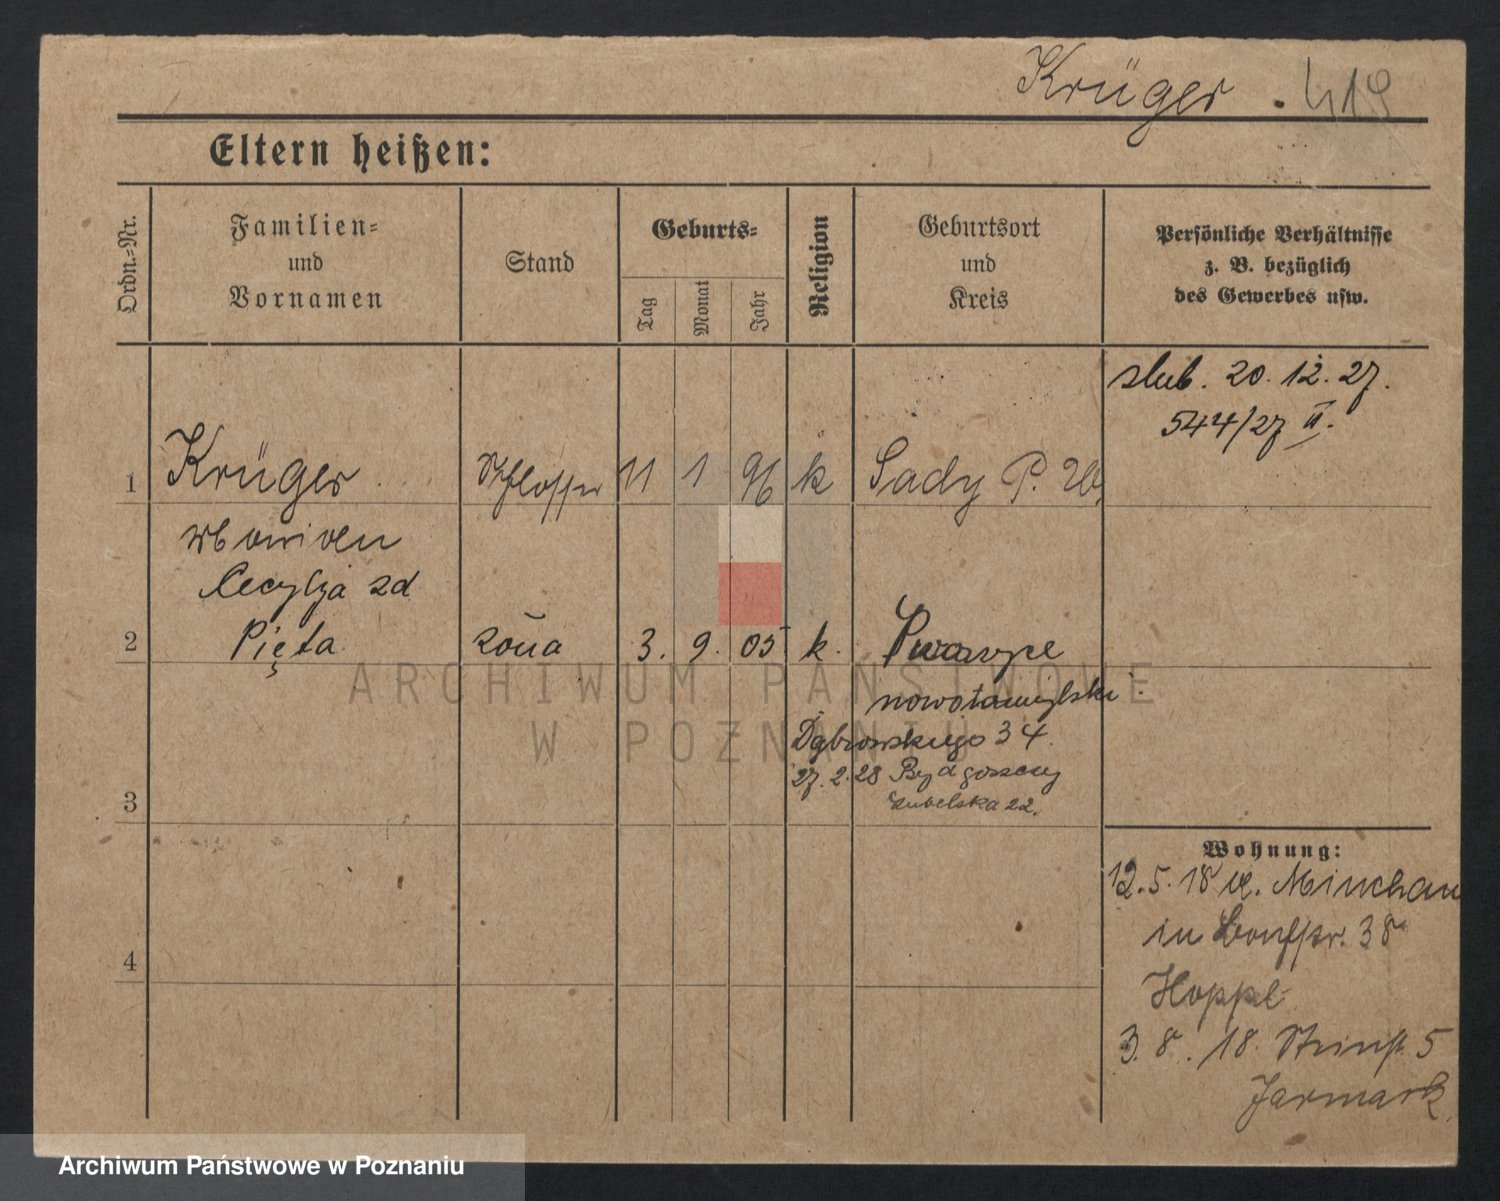 Krüger . 419
Eltern heißen:
Ordn.-Nr.
Familien-
und
Vornamen
Stand
Geburts-
Tag
Monat
Jahr
Religion
Geburtsort
und
Kreis
Persönliche Verhältnisse
z. B. bezüglich
des Gewerbes usw.
slub. 20. 12. 27.
544/27 II.
1 Krüger Schlosser 11 1 96 k Sady P. W.
Cecylja zd
2 Pięta żona 3. 9. 05 k.
nowotomyski
Dąbrowskiego 34.
27. 2. 28 Bydgoszczy
Lubelska 22.
3
Wohnung:
12. 5. 18 Minchau
in 38
Hoppe
4
3. 8. 18. 5
Jarmark
ARCHIWUM PAŃSTWOWE
W POZNANIU
Archiwum Państwowe w Poznaniu